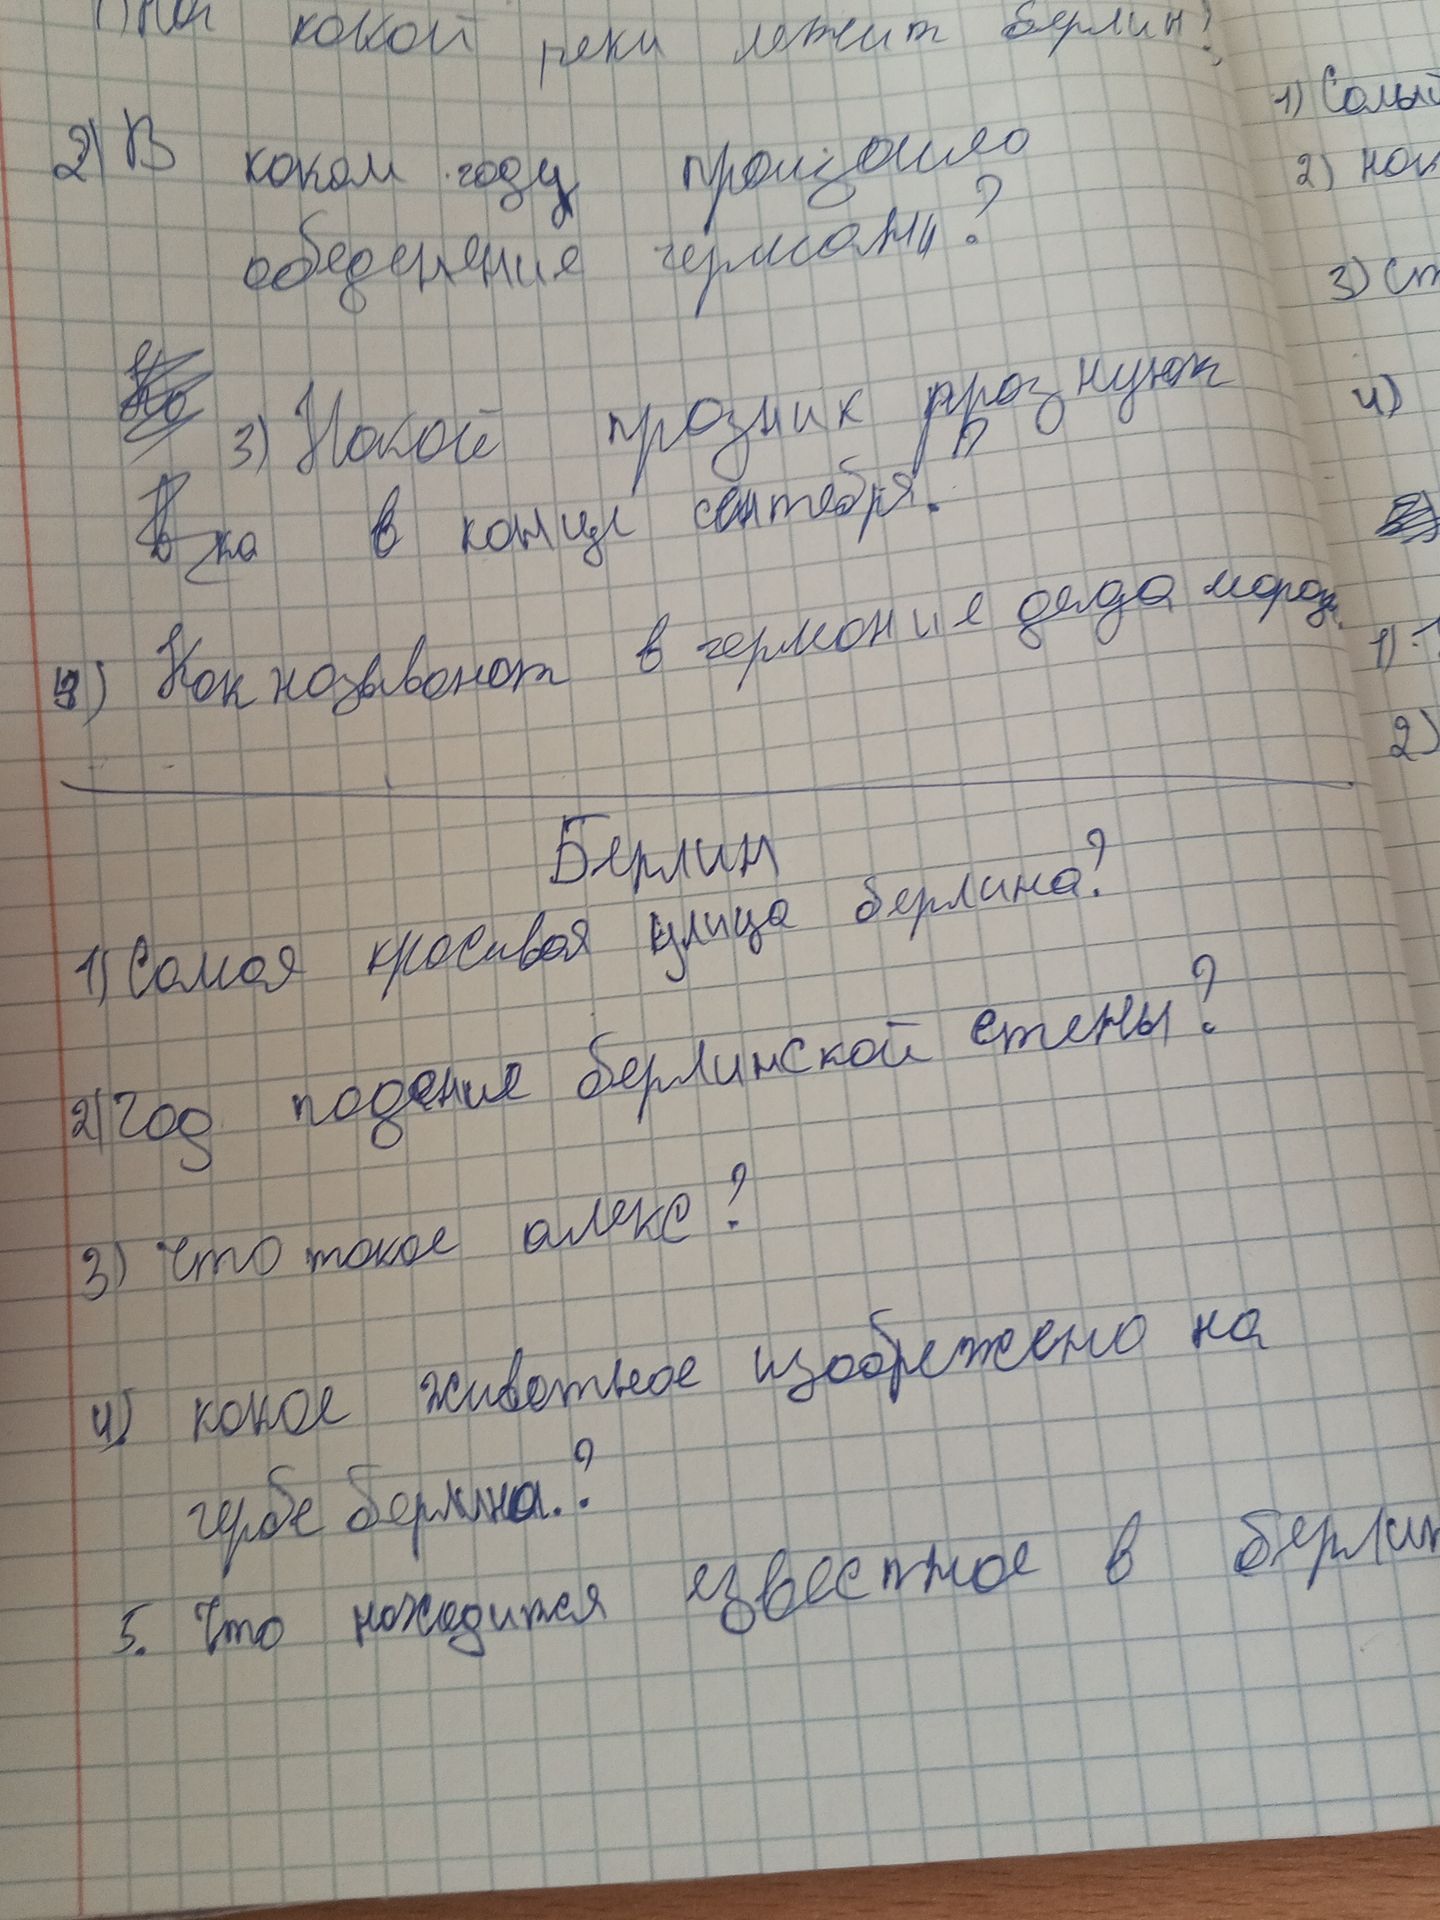 1) На какой реки лежит берлин?
2) В каком году произошло
обеденение германи?
3) Какой празник празнуют
в конце сентебря?
4) Как называют в германие деда мороза
Берлин
1) Самая красивая улица берлина?
2) Год падение берлинской стены?
3) что такое алекс?
4) какое животное изобрежено на
гербе берлина?
5. Что находится известное в берлин
1) Самый
2) как
3) ст
4)
1)
2)